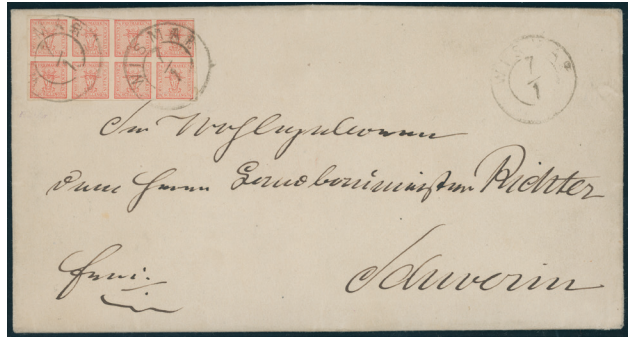 WISMAR
7
1
WISMAR
7
1
Sr Wohlgeboren
dem Herrn Landbaumeister Richter
frei.
Schwerin